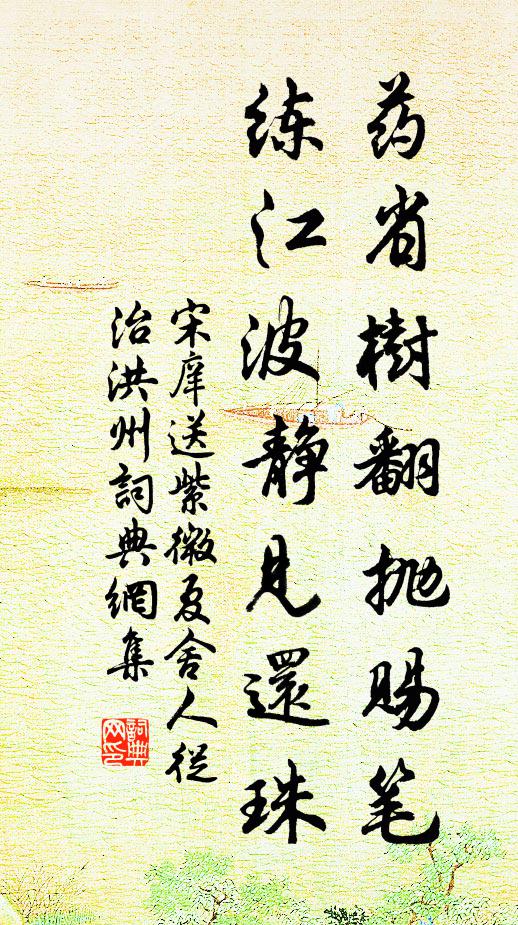 药省樹翻抛赐笔
练江波静見還珠
宋庠送紫微夏舍人從
治洪州詞典網集
詞典网印